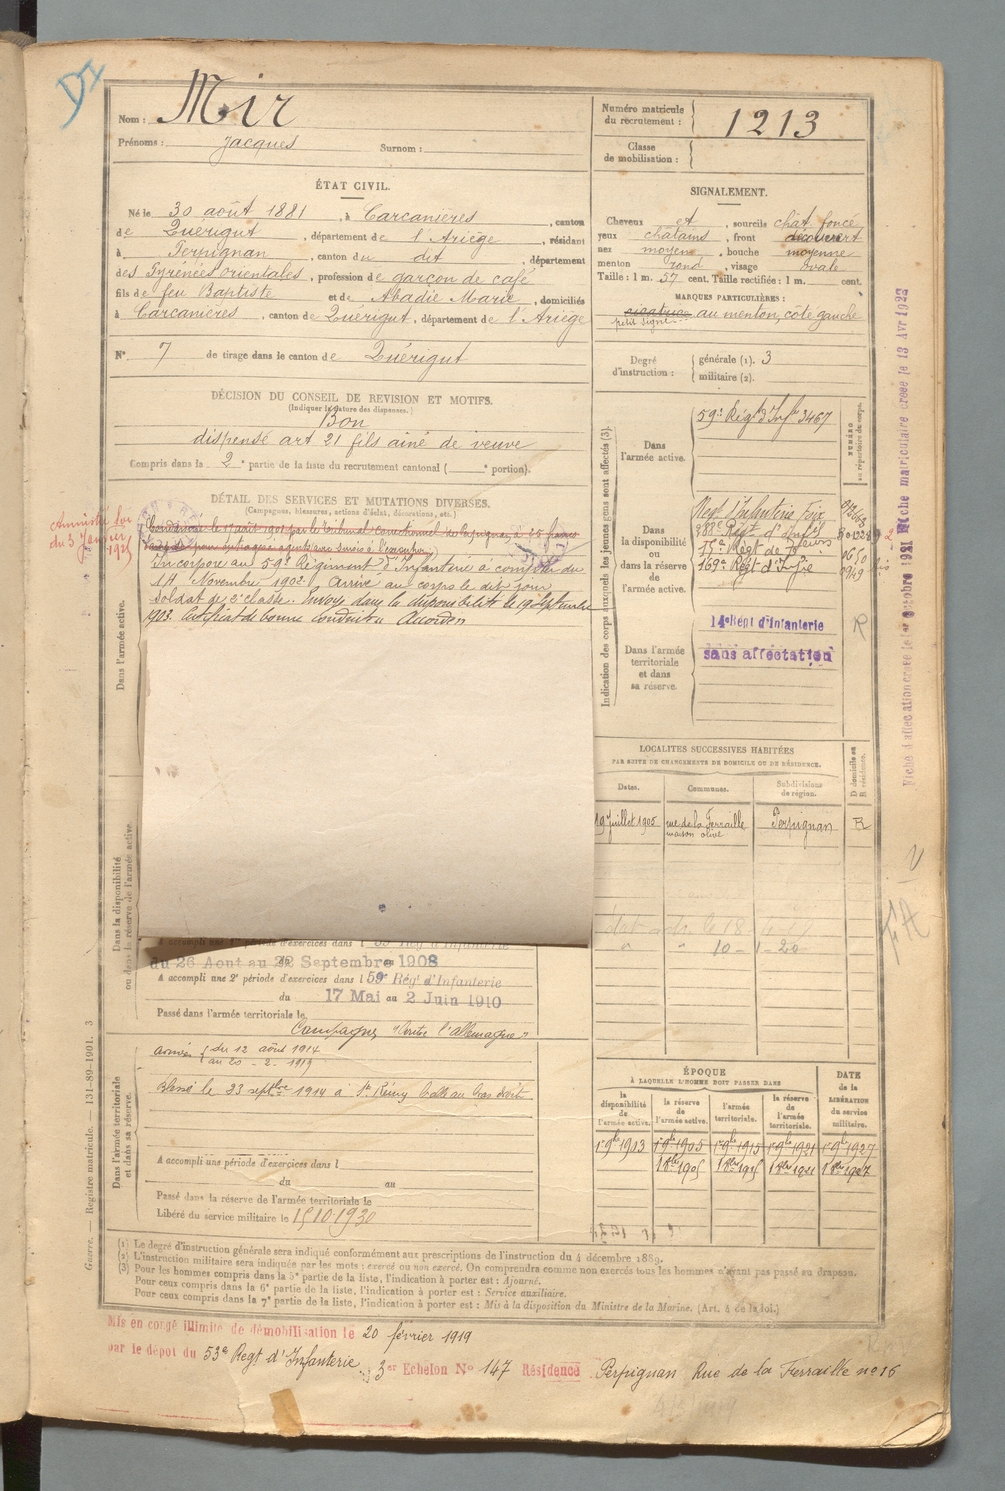 DI
Nom : Mir
Prénoms : Jacques Surnom :
Numéro matricule du recrutement : 1213
Classe de mobilisation :
ÉTAT CIVIL.
Né le 30 août 1881, à Carcanières, canton
de Quérigut, département de l'Ariège, résidant
à Perpignan, canton du dit, département
des Pyrénées orientales, profession de garçon de café
fils de feu Baptiste et de Abadie Marie, domiciliés
à Carcanières, canton de Quérigut, département de l'Ariège
N° 7 de tirage dans le canton de Quérigut
SIGNALEMENT.
Cheveux et, sourcils chat. foncé
yeux chatains, front découvert
nez moyen, bouche moyenne
menton rond, visage ovale
Taille : 1 m. 57 cent. Taille rectifiée : 1 m. cent.
MARQUES PARTICULIÈRES :
cicatrice au menton, côté gauche
petit signe
Degré d'instruction : générale (1). 3
militaire (2).
DÉCISION DU CONSEIL DE REVISION ET MOTIFS.
(Indiquer la nature des dispenses.)
Bon
dispensé art 21 fils aîné de veuve
Compris dans la 2e partie de la liste du recrutement cantonal ( e portion).
DÉTAIL DES SERVICES ET MUTATIONS DIVERSES.
(Campagnes, blessures, actions d'éclat, décorations, etc.)
Amnistié Loi
du 3 Janvier
1925
Condamné le 17 août 1901 par le tribunal correctionnel de Perpignan à 25 francs
Incorporé au 59e Régiment d'Infanterie à compter du
14 Novembre 1902. Arrivé au corps le dit jour
Soldat de 2e classe. Envoyé dans la disponibilité le 19 Septembre
1903. Certificat de bonne conduite Accordé
Dans l'armée active.
Dans la disponibilité ou dans la réserve de l'armée active.
A accompli une 1re période d'exercices dans l 59e Régt d'Infanterie
du 26 Aout au 22 Septembre 1908
A accompli une 2e période d'exercices dans l 59e Régt d'Infanterie
du 17 Mai au 2 Juin 1910
Passé dans l'armée territoriale le
Campagne "Contre l'Allemagne"
Dans l'armée territoriale et dans sa réserve.
du 12 août 1914
au 20 - 2 - 1919
Blessé le 23 septbre 1914 à St Rémy balle au bras droit
A accompli une période d'exercices dans l
du au
Passé dans la réserve de l'armée territoriale le
Libéré du service militaire le 15/10/1930
Indication des corps auxquels les jeunes gens sont affectés (3).
NUMÉRO au répertoire du corps.
Dans l'armée active.
59e Régt d'Infie 3467
Dans la disponibilité ou dans la réserve de l'armée active.
Régt d'Infanterie Foix
288e Régt d'Infie
169e Régt d'Infie
Dans l'armée territoriale et dans sa réserve.
14e Régt d'Infanterie
sans affectation
R
Fiche matriculaire créée le 13 Avr 1922
Fiche d'affectation créée le 1er Octobre 1921
LOCALITÉS SUCCESSIVES HABITÉES
PAR SUITE DE CHANGEMENTS DE DOMICILE OU DE RÉSIDENCE.
Dates. Communes. Subdivisions de région. D domicile ou R résidence.
19 Juillet 1905 rue de la Ferraille maison olive Perpignan R
" " 10 - 1 - 20
FA
ÉPOQUE
À LAQUELLE L'HOMME DOIT PASSER DANS
la disponibilité de l'armée active.
la réserve de l'armée active.
l'armée territoriale.
la réserve de l'armée territoriale.
DATE de la LIBÉRATION du service militaire.
1er 9bre 1903 1er 9bre 1905 1er 9bre 1915 1er 9bre 1921 1er 9bre 1927
1er 8bre 1905 1er 8bre 1915 1er 8bre 1921 1er 8bre 1927
(1) Le degré d'instruction générale sera indiqué conformément aux prescriptions de l'instruction du 4 décembre 1889.
(2) L'instruction militaire sera indiquée par les mots : exercé ou non exercé. On comprendra comme non exercés tous les hommes n'ayant pas passé au drapeau.
(3) Pour les hommes compris dans la 5e partie de la liste, l'indication à porter est : Ajourné.
Pour ceux compris dans la 6e partie de la liste, l'indication à porter est : Service auxiliaire.
Pour ceux compris dans la 7e partie de la liste, l'indication à porter est : Mis à la disposition du Ministre de la Marine. (Art. 4 de la loi.)
Guerre. — Registre matricule. — 131-89-1901. 3
Mis en congé illimité de démobilisation le 20 février 1919
par le dépôt du 53e Régt d'Infanterie 3er Echelon N° 147 Résidence Perpignan Rue de la Ferraille n° 16